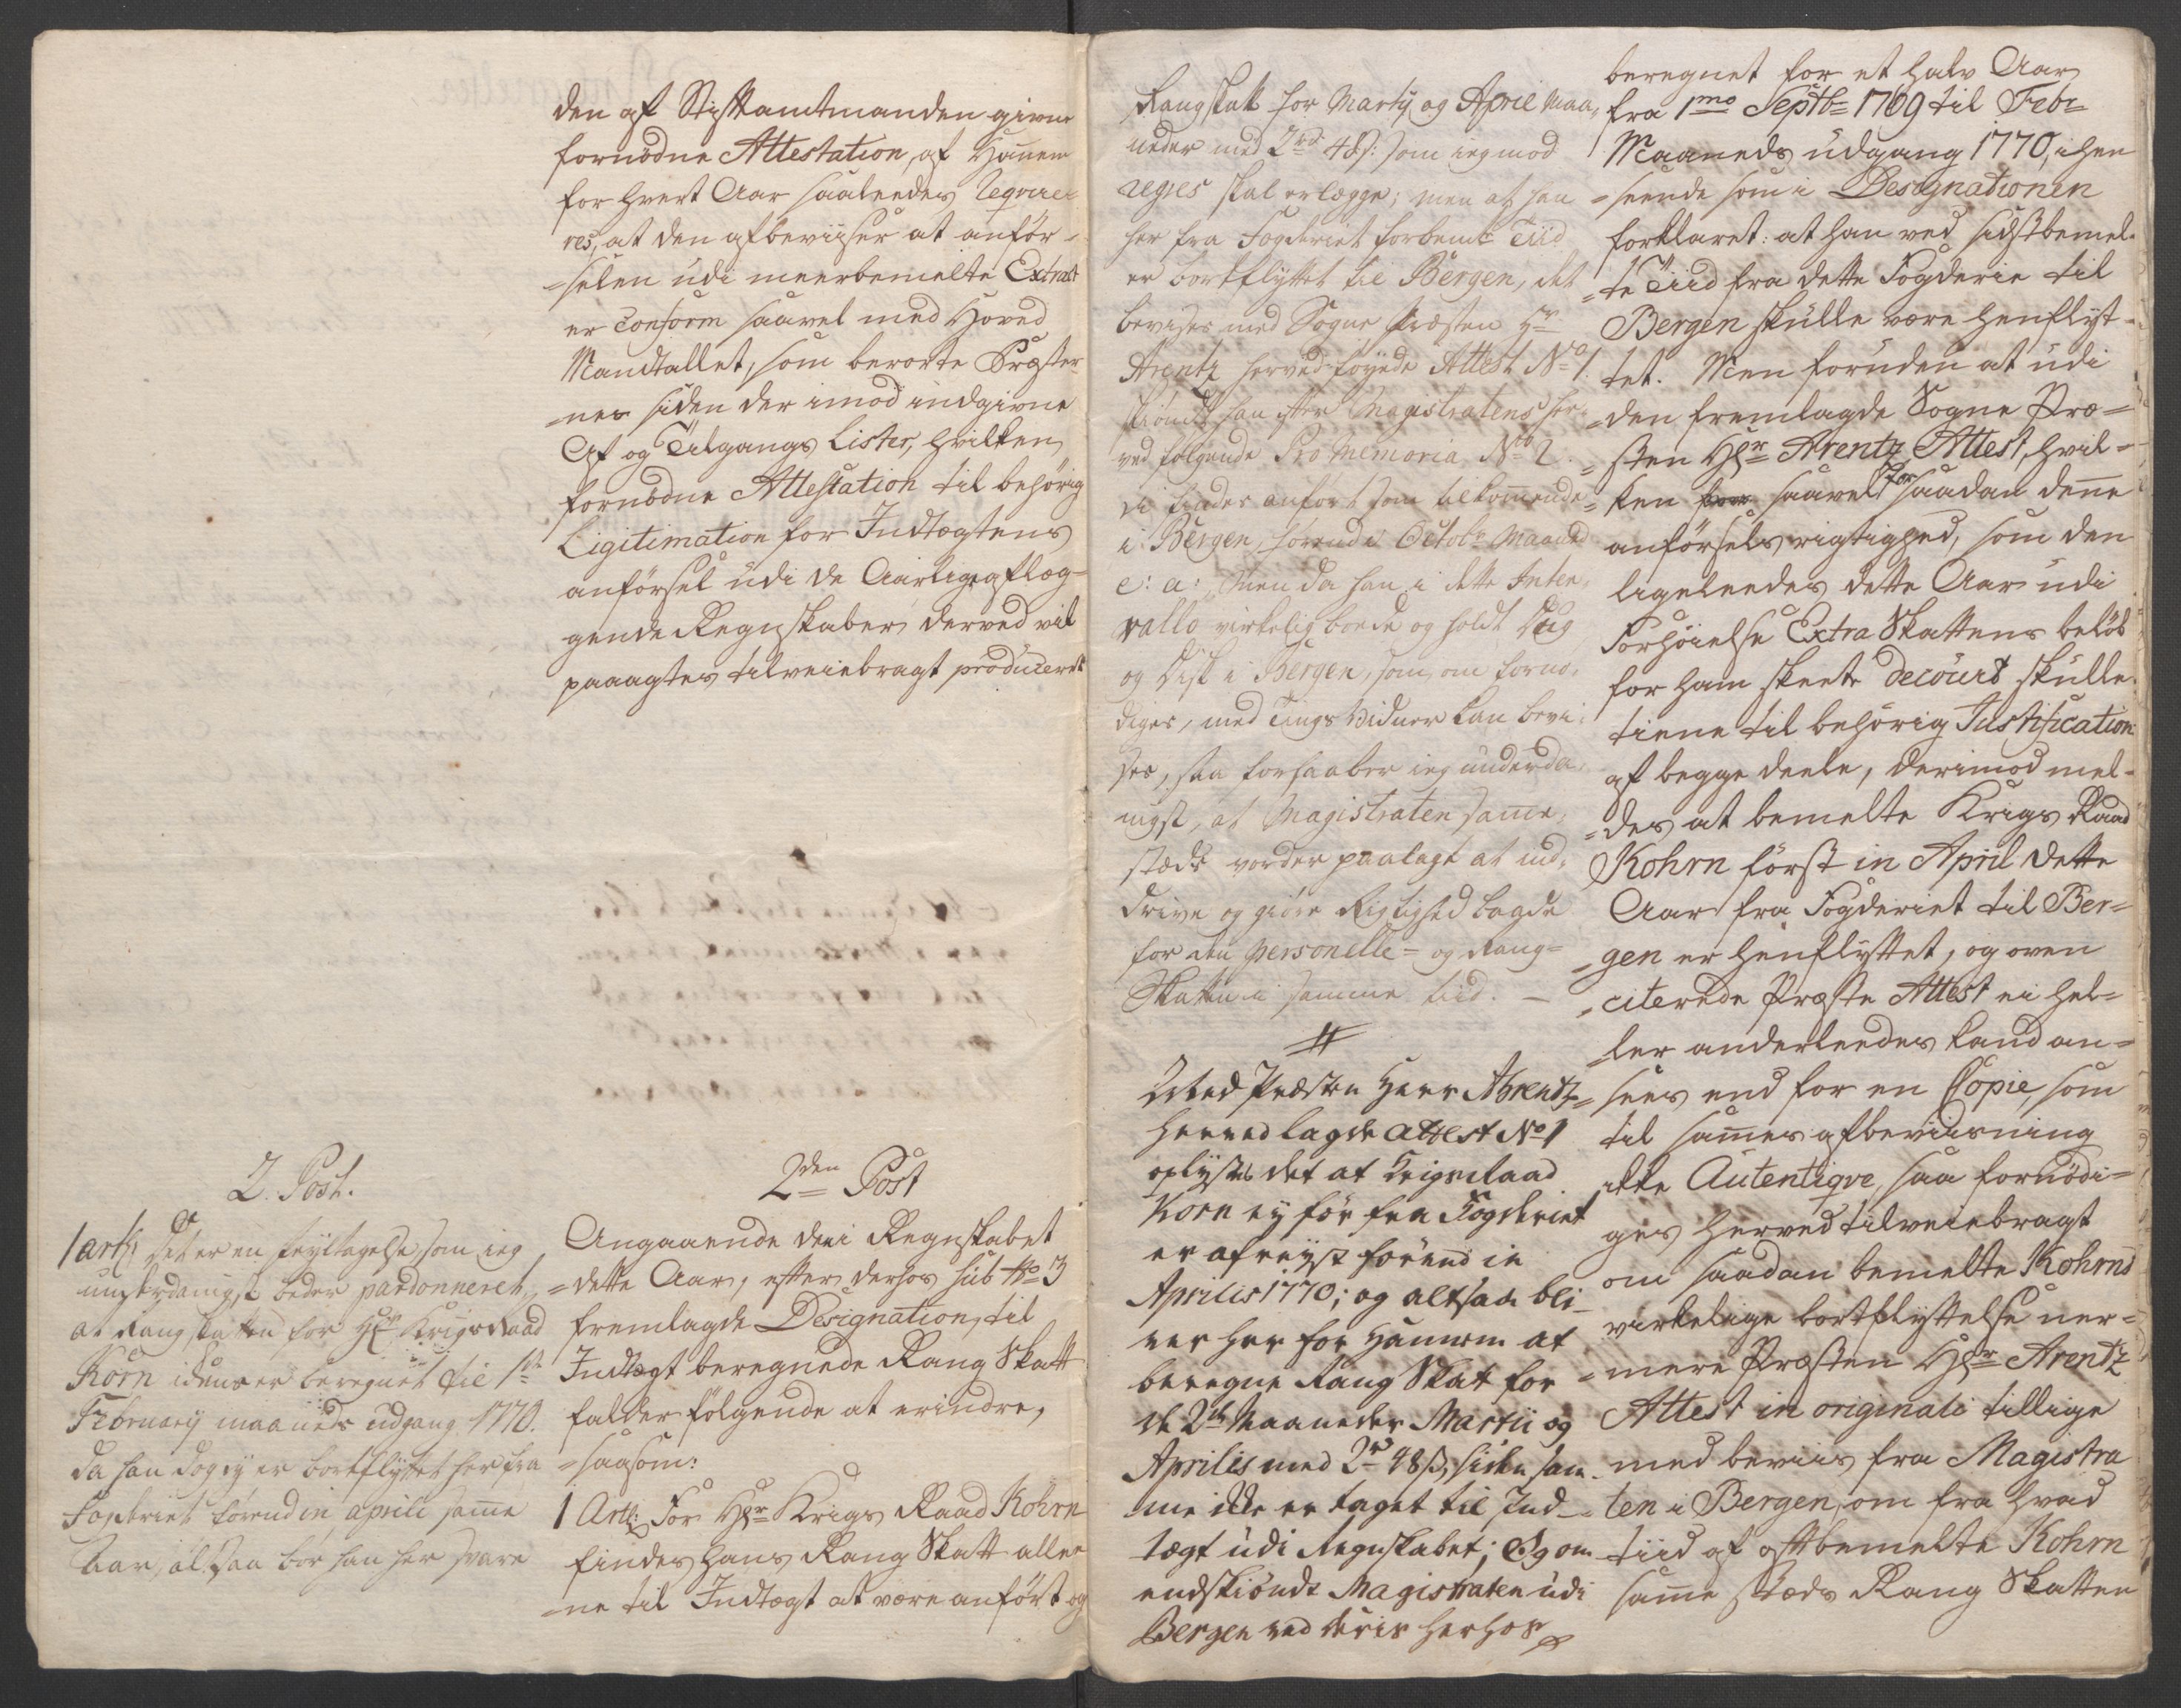 den af Stiftamtmanden givne
fornödne Attestation, af Hannem
for hvert Aar saaleedes reqvire-
res, at den afbeviiser at anför-
=selen udi meerbemelte Extract
er Conform saavel med Hoved
Mandtallet, som berörte Præster-
=nes siden der imod indgivne
Af og Tilgangs Lister, hvilken
fornödne Attestation til behörig
Ligitimation for Indtægtens
anförsel udi de Aarlige aflæg-
gende Regnskaber, derved vil
paaagtes tilveiebragt producerit
2. Post.
1 art: Det er en feyltagelse som ieg
underdanigst beder pardonneret,
at Rangskatten for Hr Krigs Raad
Korn idens er beregnet til
February maaneds udgang 1770.
da han dog ey er bortflyttet her fra
Fogderiet förend in aprili samme
Aar, altsaa bör han her svare
2den Post
Angaaende den i Regnskabet
=dette Aar, efter derhos sub No 3
fremlagde Designation, til
Indtægt beregnede Rang Skatt
falder fölgende at erindre,
=saasom:
1 Artl: For Hr Krigs Raad Kohrn
findes hans Rang Skatt alle-
=ne til Indtægt at være anfört og
Rangskatt for Marty og April Maa-
neder med 2rd 48s: som ieg mod
regres skal erlægge; men at han
her fra Fogderiet forbemte Tiid
er bortflyttet til Bergen, det
bevises med Sogne Præsten Hr
Arentz herved föyede Attest No 1.
skiöndt han efter Magistratens her-
ved fölgende Pro Memoria No 2.
ei findes anfört som tilkommende
i Bergen, förend i Octobr Maaned
e: a: Men da han i dette Inter-
vallo virkelig boede og holdt Dug
og Disk i Bergen, som, om fornö-
diges, med Tings Vidner kan bevi-
ses, saa forhaaber ieg underda-
nigst, at Magistraten samme-
stæds vorder paalagt at ind-
drive og giöre Rigtighed bagde
for den personelle= og Rang=
Skatten i samme tid. —
#
Med Præsten Herr Ahrentz
herved lagde attest No 1
oplyses det at Krigs Raad
Korn ey för fra Fogderiet
er afreyst förend in
Aprilis 1770; og altsaa bli-
ver her for Hannem at
beregne Rang Skat for
de 2de Maaneder Martii og
Aprilis med 2rd 48s, siden sam-
me ikke er taget til Ind-
tægt udi Regnskabet; Og om
endskiöndt Magistraten udi
Bergen ved deris herhos
beregnet for et halv Aar
fra 1mo Septb= 1769 til Febr=
Maaneds udgang 1770, i hen
=seende som i Designationen
forklaret: at han ved sidstbemel-
=te Tiid fra dette Fogderie til
Bergen skulle være henflyt-
tet. Men foruden at udi
=den fremlagde Sogne Præ=
=sten Hr Arentz Attest, hvil=
=ken saavel for saadan denne
anförsels rigtighed, som den
ligeleedes dette Aar udi
Forhöielse Extra Skattens belöb
for ham skeete decourt skulle
tiene til behörig Justification
af begge deele, derimod mel-
=des at bemelte Krigs Raad
Kohrn först in April dette
Aar fra Fogderiet til Ber=
=gen er henflyttet, og oven
=citerede Præste Attest ei hel=
=ler anderleedes kand an=
=sees end for en Copie, som
til sammes afbeviisning
ikke Autentiqve, saa fornödi=
ges herved tilveiebragt
om saadan bemelte Kohrns
virkelige bortflyttelse ner=
=mere Præsten Hr Arentz
Attest in originali tillige
med beviis fra Magistra
=ten i Bergen, om fra hvad
tiid af oftbemelte Kohrn
samme stæds Rang Skatten